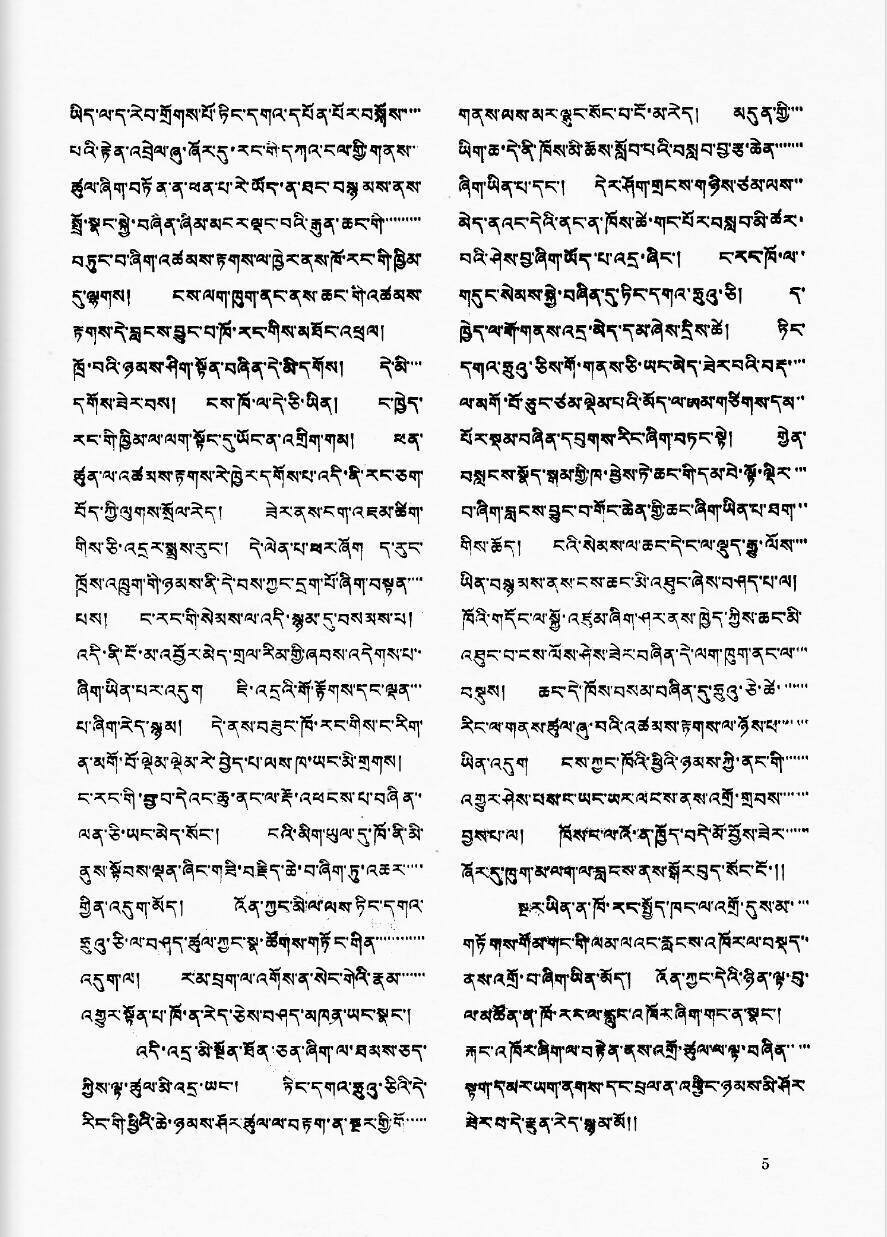 ཡིད་ལ་ད་རེབ་གྲོགས་པོ་ཏིང་དགའ་དཔོན་པོར་བསྐོས་
པའི་རྟེན་འབྲེལ་ཞུ་ཞོར་དུ་རང་གི་དཀའ་ངལ་གྱི་གནས་
ཚུལ་ཞིག་བཏོན་ན་ཕན་པ་རེ་ཡོད་ན་ཐང་བསྙམས་ནས་
སྤྲོ་སྣང་སྐྱེ་བཞིན་ཞིམ་མངར་ལྡང་བའི་རྒུན་ཆང་གི་
བཏུང་བ་ཞིག་འཚམས་རྟགས་ལ་ཁྱེར་ནས་ཁོ་རང་གི་ཁྱིམ་
དུ་ལྷགས། ངས་ལག་ཁུག་ནང་ནས་ཆང་གི་འཚམས་
རྟགས་དེ་བླངས་བྱུང་བ་ཁོ་རང་གིས་མཐོང་འཕྲལ།
ཁྲོ་བའི་ཉམས་ཤིག་སྟོན་བཞིན་དེ་མི་དགོས། དེ་མི་
དགོས་ཟེར་བས། ངས་ཁོ་ལ་དེ་ཅི་ཡིན། ང་ཁྱེད་
རང་གི་ཁྱིམ་ལ་ལག་སྟོང་དུ་ཡོང་ན་འགྲིག་གམ། ཕན་
ཚུན་ལ་འཚམས་རྟགས་རེ་ཁྱེར་དགོས་པ་འདི་ནི་རང་ཅག་
བོད་ཀྱི་ལུགས་སྲོལ་རེད། ཟེར་ནས་ངག་འཇམ་ཚིག་
གིས་ཅི་འདྲར་སྨྲས་རུང་། དེ་ལེན་པ་ཕར་ཞོག ད་རུང་
ཁྲོས་འཁྲུག་གི་ཉམས་ནི་དེ་བས་ཀྱང་དྲག་པོ་ཞིག་བསྟན་
པས། ང་རང་གི་སེམས་ལ་འདི་སྙམ་དུ་བསམས་པ།
འདི་ནི་ངོ་མ་འབྱོར་མེད་གྲལ་རིམ་གྱི་ཞབས་འདེགས་པ་
ཞིག་ཡིན་པར་འདུག ཇི་འདྲའི་གོ་རྟོགས་དང་ལྡན་
པ་ཞིག་རེད་སྙམ། དེ་ནས་བཟུང་ཁོ་རང་གིས་ང་རིག་
ན་མགོ་བོ་ལྡེམ་ལྡེམ་རེ་བྱེད་པ་ལས་ཁ་ཡང་མི་གྲགས།
ང་རང་གི་བྱ་བ་དེའང་ཆུ་ནང་ལ་རྡོ་འཕངས་པ་བཞིན་
ལན་ཅི་ཡང་མེད་སོང་། ངའི་མིག་ཡུལ་དུ་ཁོ་ནི་མི་
ནུས་སྟོབས་ལྡན་ཞིང་གཟི་བརྗིད་ཆེ་བ་ཞིག་ཏུ་འཆར་
གྱིན་འདུག་མོད། འོན་ཀྱང་མི་ལ་ལས་ཏིང་དགའ་
ཧྲུའུ་ཅི་ལ་བཤད་ཚུལ་ཀྱང་སྣ་ཚོགས་གཏོང་གིན་
འདུག་ལ། རམ་ཕྲག་ལ་འགོས་ན་སེང་གེའི་རྣམ་
འགྱུར་སྟོན་པ་ཁོ་ན་རེད་ཅེས་བཤད་མཁན་ཡང་སྣང་།
འདི་འདྲ་མི་སྔོན་ཐོན་ཅན་ཞིག་ལ་ཐམས་ཅད་
ཀྱིས་ལྟ་ཚུལ་མི་འདྲ་ཡང་། ཏིང་དགའ་ཧྲུའུ་ཅིའི་དེ་
རིང་གི་ཕྱིའི་ཆེ་ཉམས་ཤོར་ཚུལ་ལ་བརྟག་ན་སྔར་གྱི་གོ་
གནས་ལས་མར་ལྷུང་སོང་བ་ངོ་མ་རེད། མདུན་གྱི་
ཡིག་ཆ་དེ་ནི་ཁོས་མི་ཆོས་སློབ་པའི་བསླབ་བྱ་རྩ་ཆེན་
ཞིག་ཡིན་པ་དང་། དེར་ཤོག་གྲངས་གཉིས་ཙམ་ལས་
མེད་ནའང་དེའི་ནང་ན་ཁོས་ཚེ་གང་པོར་བསླབ་མི་ཚར་
བའི་ཤེས་བྱ་ཞིག་ཡོད་པ་འདྲ་ཞིང་། ང་རང་ཁོ་ལ་
གདུང་སེམས་སྐྱེ་བཞིན་དུ་ཏིང་དགའ་ཧྲུའུ་ཅི། ད་
ཁྱེད་ལ་གོ་གནས་འདྲ་མེད་དམ་ཞེས་དྲིས་ཚེ། ཏིང་
དགའ་ཧྲུའུ་ཅིས་གོ་གནས་ཅི་ཡང་མེད་ཟེར་བའི་བརྡ་
ལ་མགོ་བོ་ཅུང་ཙམ་ལྡེམ་པའི་མོད་ལ་ཨམ་གཙིགས་དམ་
པོར་སྡམ་བཞིན་དབུགས་རིང་ཞིག་བཏང་སྟེ། གྱེན་
བསླངས་སྣོད་སྒམ་གྱི་ཁ་ཕྱེས་ཏེ་ཆང་གི་དམ་བེ་ལྟོ་ལྡིར་
བ་ཞིག་བླངས་བྱུང་བ་གོང་ཆེན་གྱི་ཆང་ཞིག་ཡིན་པ་ཐག་
གིས་ཆོད། ངའི་སེམས་ལ་ཆང་དེ་ང་ལ་ལྡུད་རྒྱུ་ལོས་
ཡིན་བསྙམས་ནས་ངས་ཆང་མི་འཐུང་ཞེས་བཤད་པ་ལ།
ཁོའི་གདོང་ལ་སྐྱོ་འཛུམ་ཞིག་ཤར་ནས་ཁྱེད་ཀྱིས་ཆང་མི་
འཐུང་བ་ངས་ལོས་ཤེས་ཟེར་བཞིན་དེ་ལག་ཁུག་ནང་ལ་
བསྡུས། ཆང་དེ་ཁོས་བསམ་བཞིན་དུ་ཧྲུའུ་ཅི་ཚེ་
རིང་ལ་གནས་ཚུལ་ཞུ་བའི་འཚམས་རྟགས་ལ་ཉོས་པ་
ཡིན་འདུག ངས་ཀྱང་ཁོའི་ཕྱིའི་ཉམས་ཀྱི་ནང་གི་
འགྱུར་ཤེས་པས་ང་ཡང་ཡར་ལངས་ནས་འགྲོ་གྲབས་
བྱས་པ་ལ། ཁོས་ང་ལ་འོ་ན་ཁྱོད་བདེ་མོ་བྱོས་ཟེར་
ཞོར་དུ་ཁུག་མ་ལག་ལ་བླངས་ནས་སྒོར་བུད་སོང་ངོ་།།
སྔར་ཡིན་ན་ཁོ་རང་སྤྱོད་ཁང་ལ་འགྲོ་དུས་མ་
གཏོགས་གོམ་གང་གི་ལམ་ལའང་རླངས་འཁོར་ལ་བསྡད་
ནས་འགྲོ་བ་ཞིག་ཡིན་མོད། འོན་ཀྱང་དེའི་ཉིན་ལྟ་བུ་
ལ་མཚོན་ན་ཁོ་རང་ལ་རླུང་འཁོར་ཞིག་གང་ན་སྣང་།
རྐང་འཁོར་ཞིག་ལ་བརྟེན་ནས་འགྲོ་ཚུལ་ལ་ལྟ་བཞིན་
སྟག་དམར་ཡག་ནགས་དང་བྲལ་ན་འགྱིང་ཉམས་མི་ཤོར་
ཟེར་བ་དེ་རྫུན་རེད་སྙམ་མོ།།
5